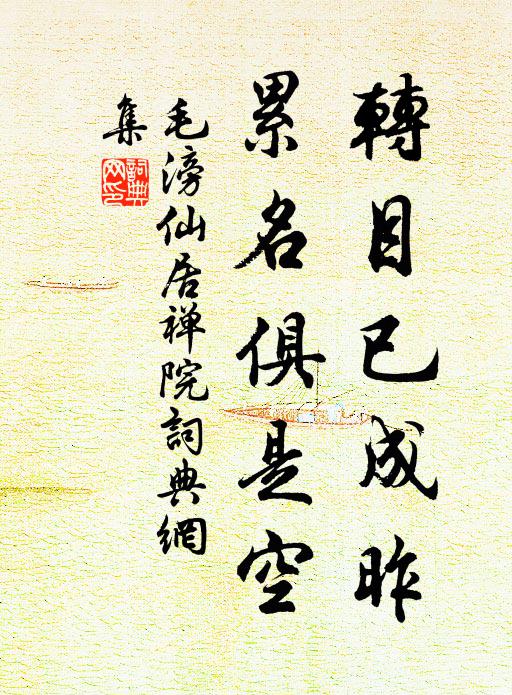 轉目已成昨
累名俱是空
毛滂仙居禅院詞典網
集
詞典網印